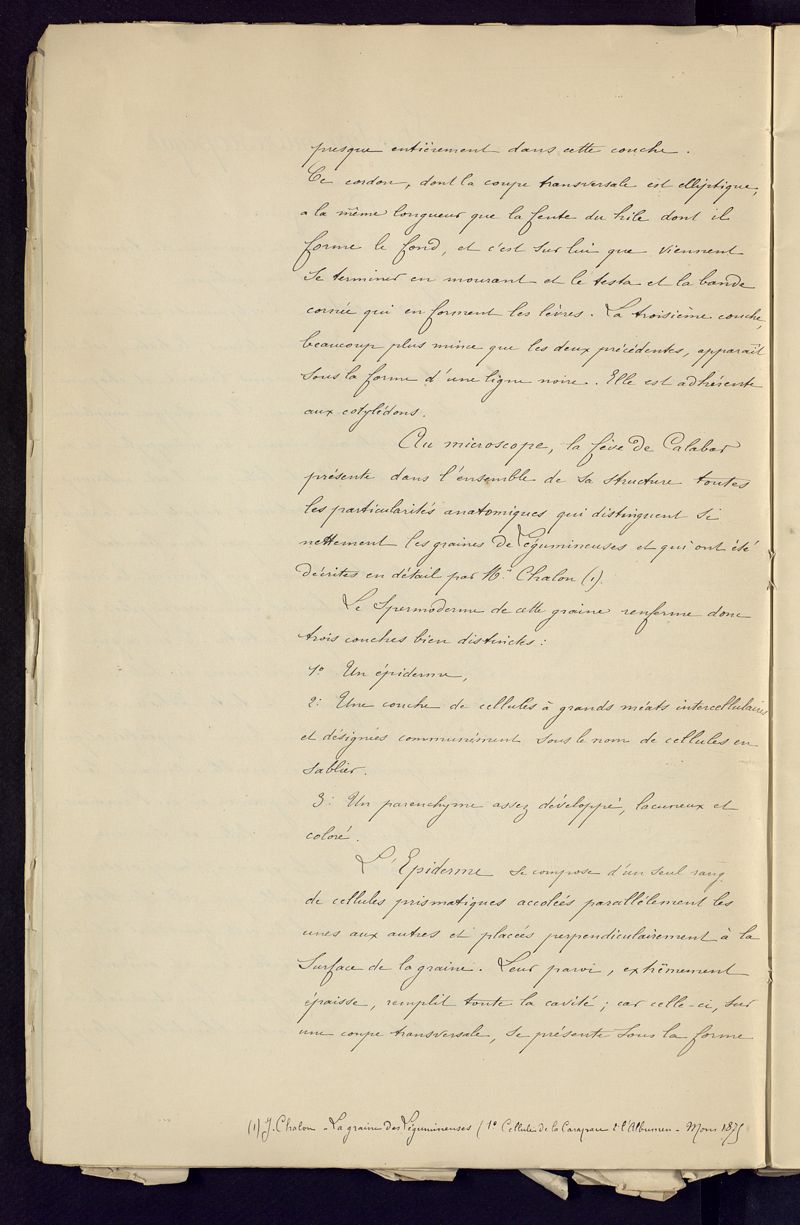 presque entièrement dans cette couche.
Ce cordon, dont la coupe transversale est elliptique,
a la même longueur que la fente du hile dont il
forme le fond, et c'est sur lui que viennent
se terminer en mourant et le testa et la bande
cornée qui en forment les lèvres. La troisième couche,
beaucoup plus mince que les deux précédentes, apparaît
sous la forme d'une ligne noire. Elle est adhérente
aux cotylédons.
Au microscope, la fève de Calabar
présente dans l'ensemble de sa structure toutes
les particularités anatomiques qui distinguent si
nettement les graines de Légumineuses et qui ont été
décrites en détail par Mr. Chalon (1).
Le Spermoderme de cette graine renferme donc
trois couches bien distinctes :
1o Un épiderme,
2o Une couche de cellules à grands méats intercellulaires
et désignées communément sous le nom de cellules en
sablier.
3o Un parenchyme assez développé, lacuneux et
coloré.
L'Epiderme se compose d'un seul rang
de cellules prismatiques accolées parallèlement les
unes aux autres et placées perpendiculairement à la
surface de la graine. Leur paroi, extrêmement
épaisse, remplit toute la cavité ; car celle-ci, sur
une coupe transversale, se présente sous la forme
(1) J. Chalon - La graine des Légumineuses (1o Cellule de la Carapace 2o l'Albumen - Mons 1875